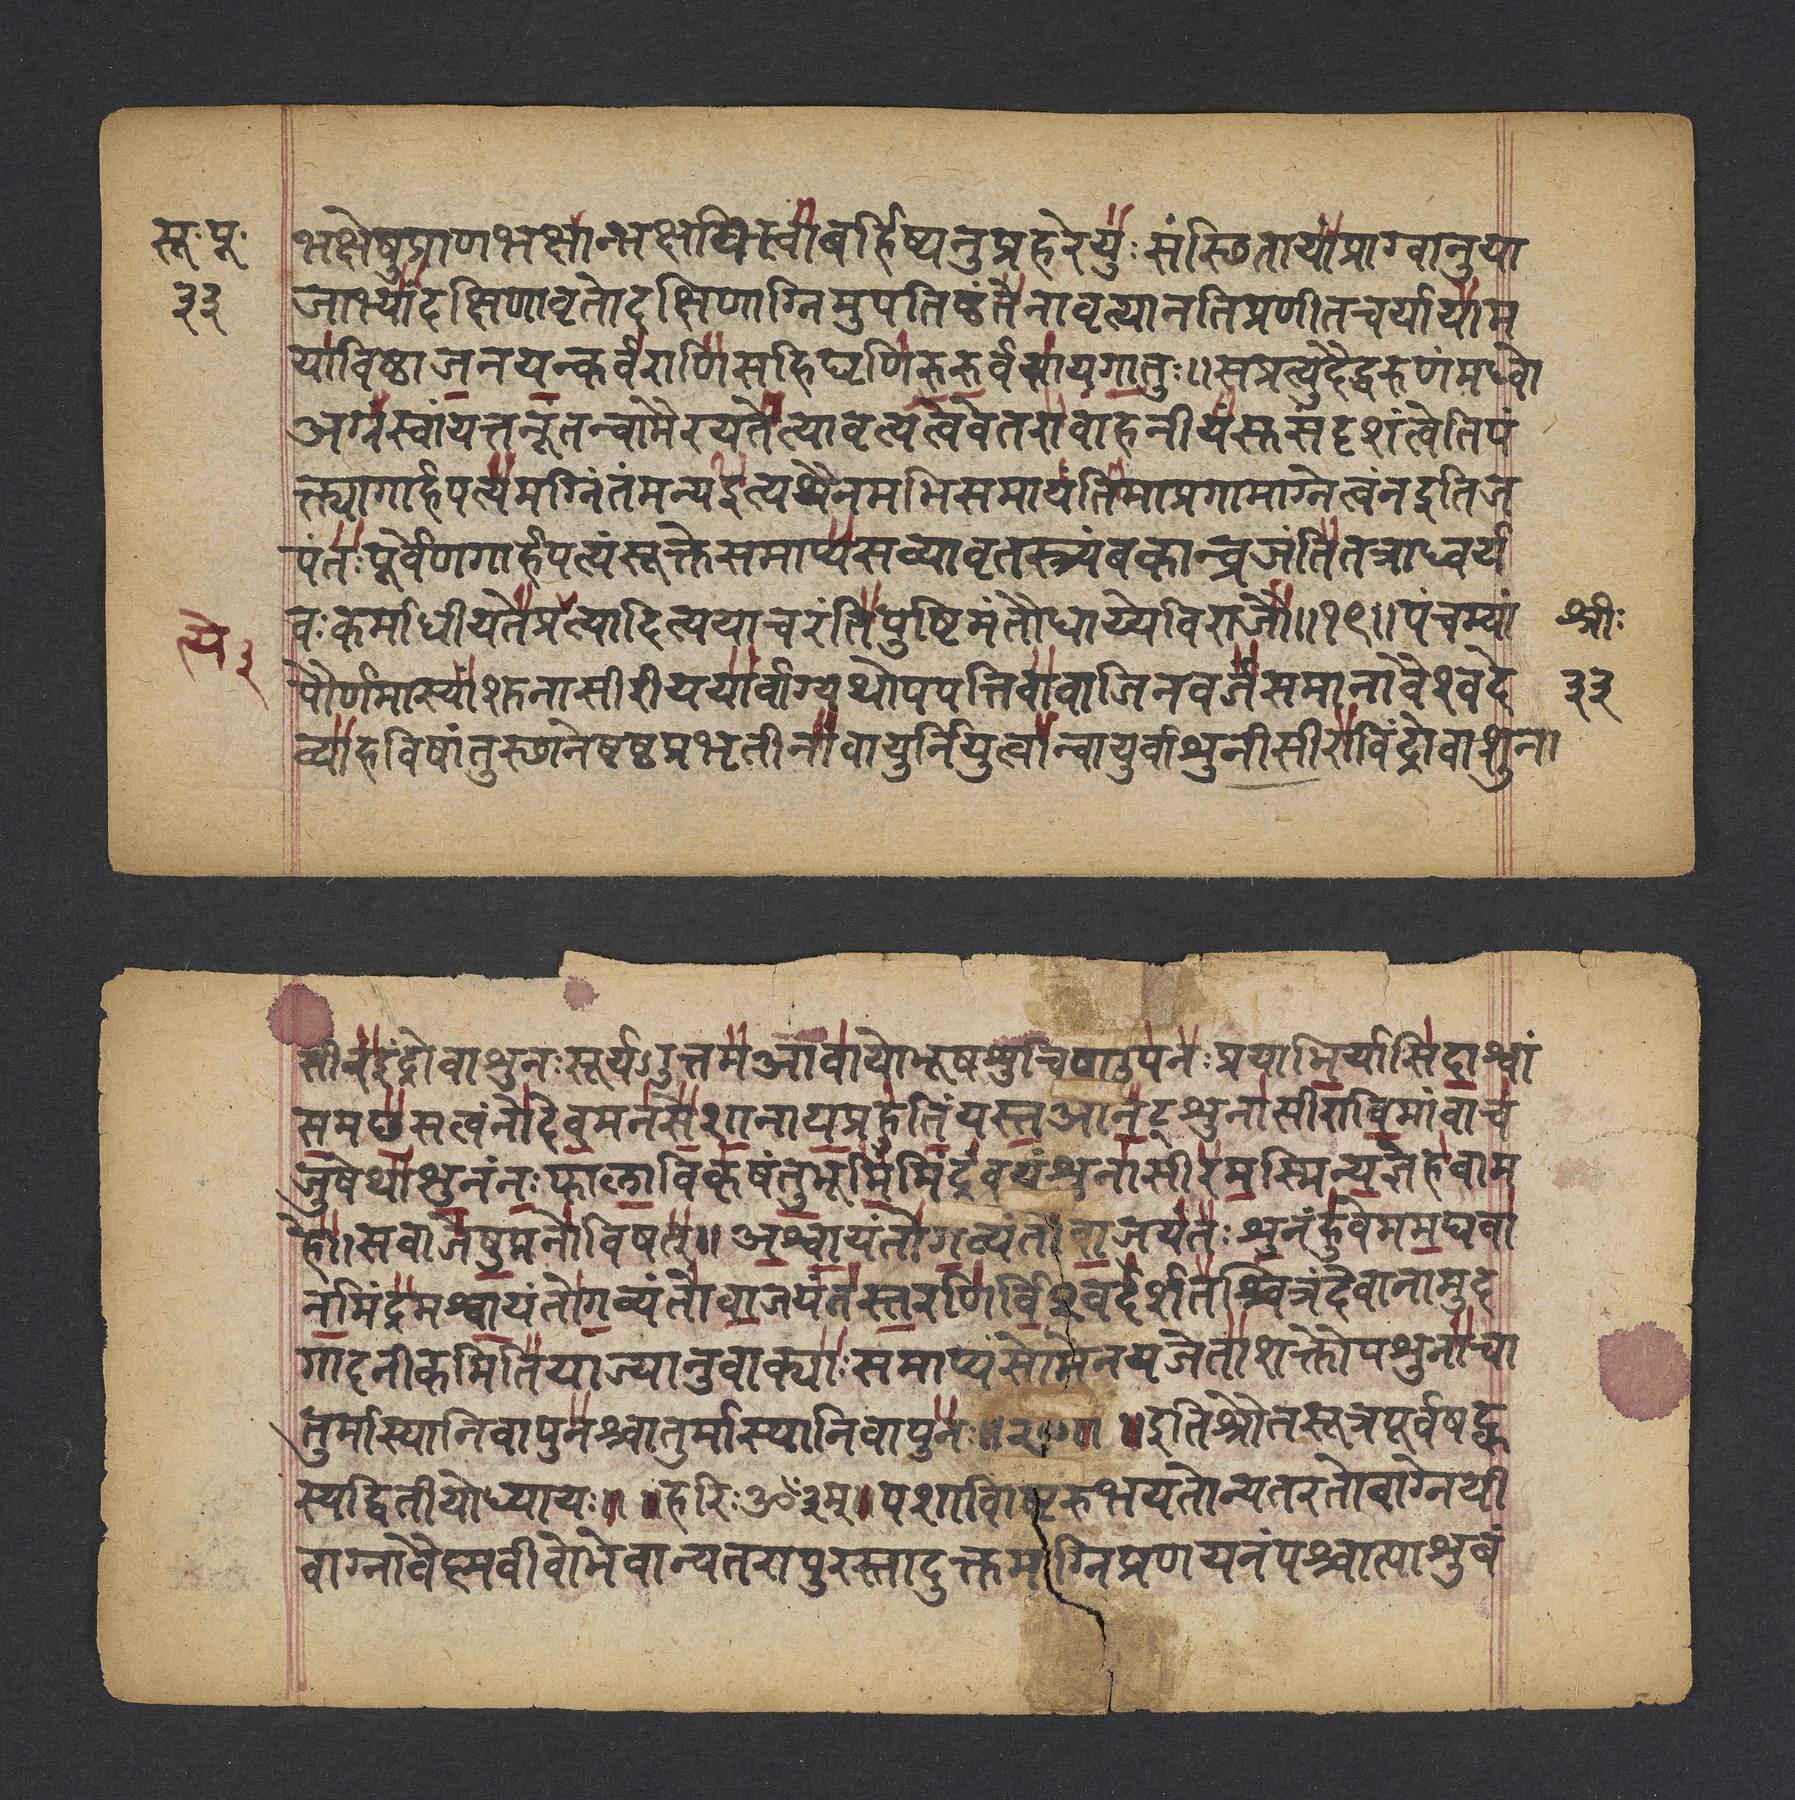 सू॰ पू॰
३३
भक्षेषुप्राणभक्षान्भक्षयित्वाबर्हिष्यनुप्रहरेयुःसंस्छितायांप्राग्वानुया
जाभ्यांदक्षिणावृतोदक्षिणाग्निमुपतिष्ठंतेनावृत्यानतिप्रणीतचर्यायाम
याविष्ठाजनयन्कर्वराणिसहिघृणिरुरुर्वरायगातुः॥सप्रत्युदैद्धरुणंमध्वो
अग्रंस्वांयत्तनूतन्वामैरयतेत्यावृत्यत्वेवेतरावाहनीयंसुसंदृशंत्वेतिपं
क्त्यागार्हपत्यमग्निंतंमन्यइत्यथैनमभिसमायंतिमाप्रगामाग्नेत्वंनइतिज
पंतःपूर्वेणगार्हपत्यंसूक्तेसमाप्यसव्यावृतस्त्र्यंबकान्व्रजंतितत्राध्वर्य
वःकर्माधीयतेप्रत्येत्यादित्ययाचरंतिपुष्टिमंतौधाय्येविराजौ॥१९॥पंचम्यां
त्ये३
श्रीः
पौर्णमास्यांशुनासीरीययार्वाग्यथोपपत्तिवावाजिनवर्जंसमानोवैश्वदे
३३
व्याहविषांतुस्छानेषष्ठप्रभृतीनांवायुर्नियुत्वान्वायुर्वाशुनासीराविंद्रोवाशुना
सीरइंद्रोवाशुनःसूर्यउत्तमआवायोभूषशुचिपाउपनःप्रयाभिर्यासिदाश्वां
समछसत्वंनोदेवमनसेशानायप्रहुतिंयस्तआनट्शुनासीराविमांवाचं
जुषेथांशुनंनःफालाविकृषंतुभूमिमिंद्रंवयंशुनासीरमस्मिन्यज्ञेहवाम
हे॥सवाजेषुप्रनोविषत्॥अश्वायंतोगव्यंतोवाजयंतःशुनंहुवेममघवा
नमिंद्रमश्वायंतोगव्यंतोवाजयंतस्तरणिर्विश्वदर्शतश्चित्रंदेवानामुद
गादनीकमितियाज्यानुवाक्याःसमाप्यसोमेनयजेताशक्तौपशुनाचा
तुर्मास्यानिवापुनश्चातुर्मास्यानिवापुनः॥२०॥ ॥इतिश्रौतसूत्रपूर्वषट्क
स्यद्वितीयोध्यायः॥ ॥हरिःॐ३म्॥पशाविष्टिरुभयतोन्यतरतोवाग्नेयी
वाग्नावैष्णवीवोभेवान्यतरापुरस्तादुक्तमग्निप्रणयनंपश्चात्पाशुबं